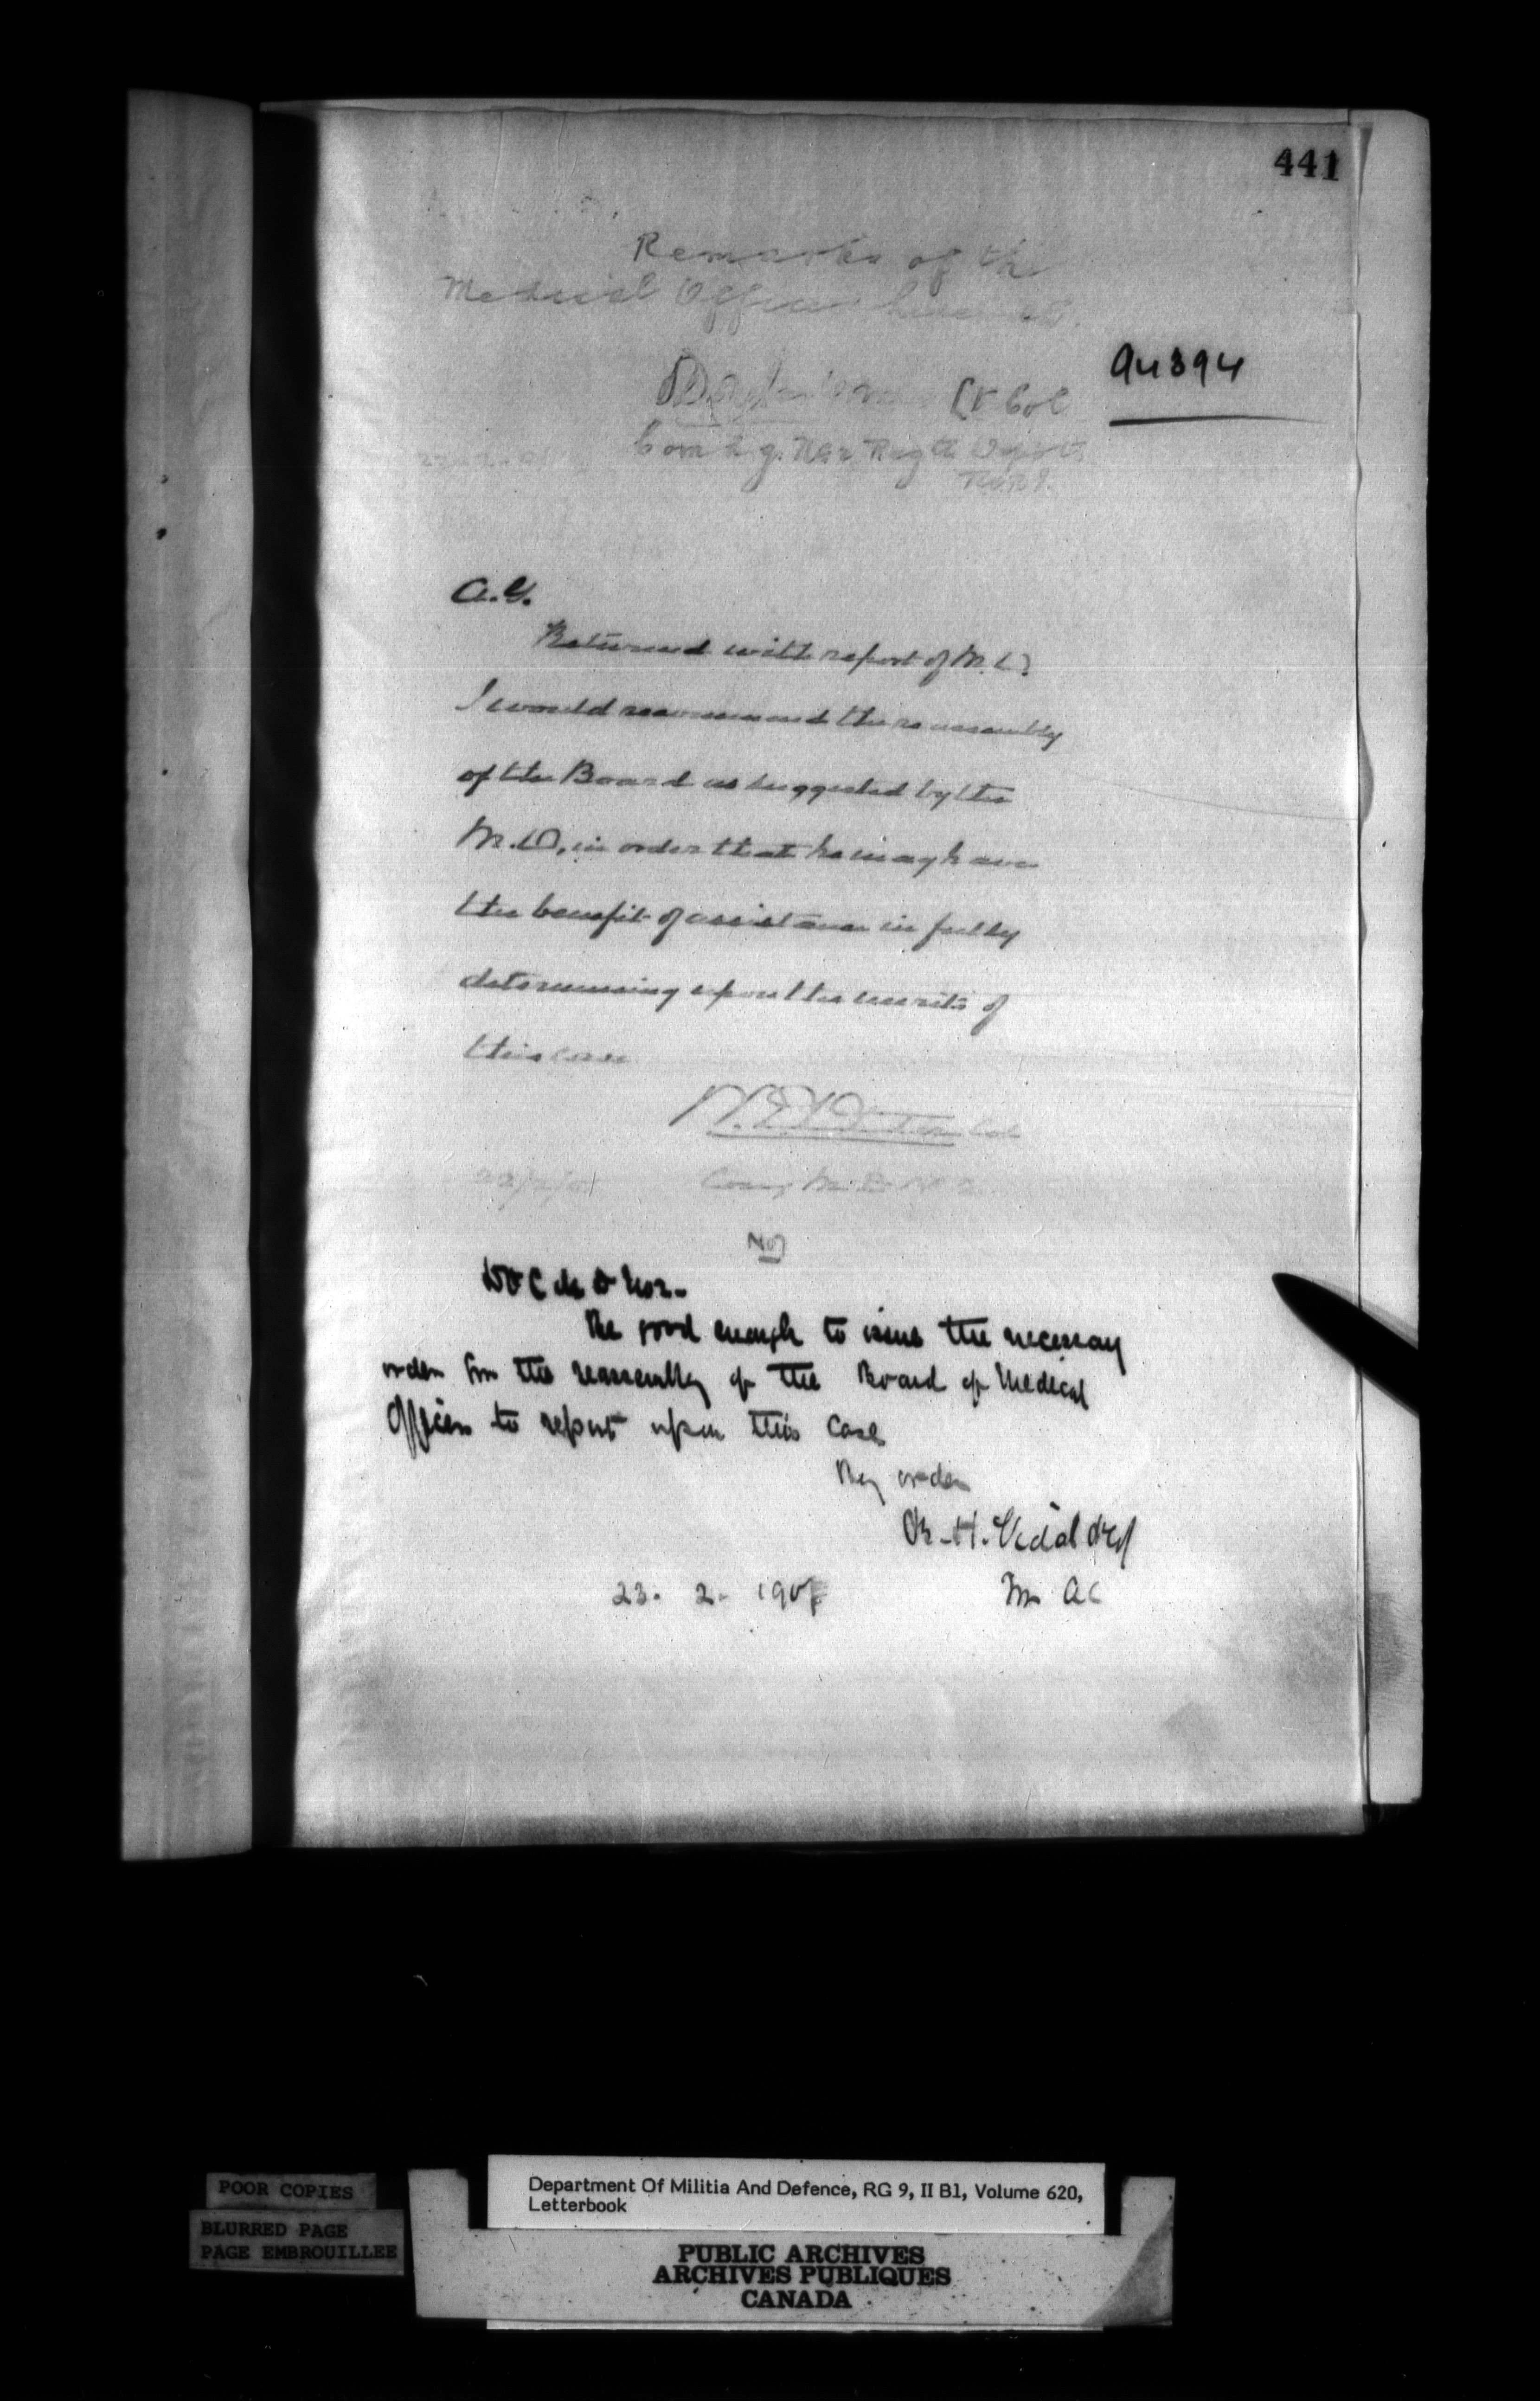 441
Remarks of the
Medical Officer
94394
Lt Col
Comdg. No 2 Regtl Depot
A.G.
Returned with report of M.O.
I would recommend the reassembly
of the Board as suggested by the
M.O, in order that he may have
the benefit of assistance in fully
determining upon the merits of
this case
Col
22/2/01 Comg M.D. No 2
D O C M D No 2.
Be good enough to issue the necessary
order for the reassembly of the Board of Medical
Officers to report upon this case
By order
B. H. Vidal
23. 2. 190
POOR COPIES
BLURRED PAGE
PAGE EMBROUILLEE
Department Of Militia And Defence, RG 9, II B1, Volume 620,
Letterbook
PUBLIC ARCHIVES
ARCHIVES PUBLIQUES
CANADA